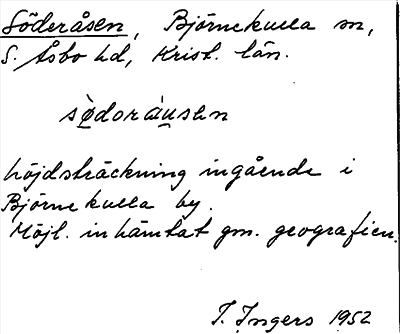 Söderåsen, Björnekulla sn,
S. Åsbo hd, Krist. län.
sø̀doráu̯sɘn
höjdsträckning ingående i
Björnekulla by.
Möjl. inhämtat gm. geografien.
I. Ingers 1952